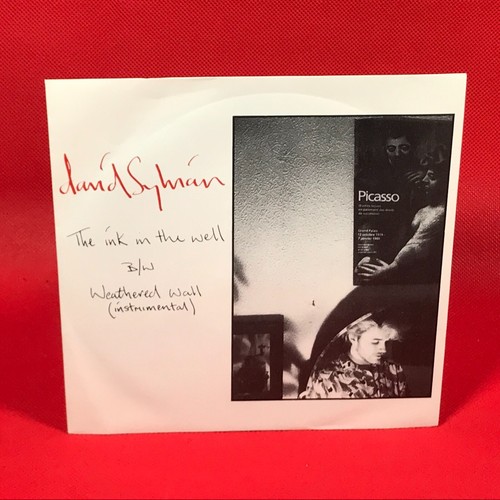 david Sylvian
The ink in the well
B/W
Weathered wall
(instrumental)
Picasso